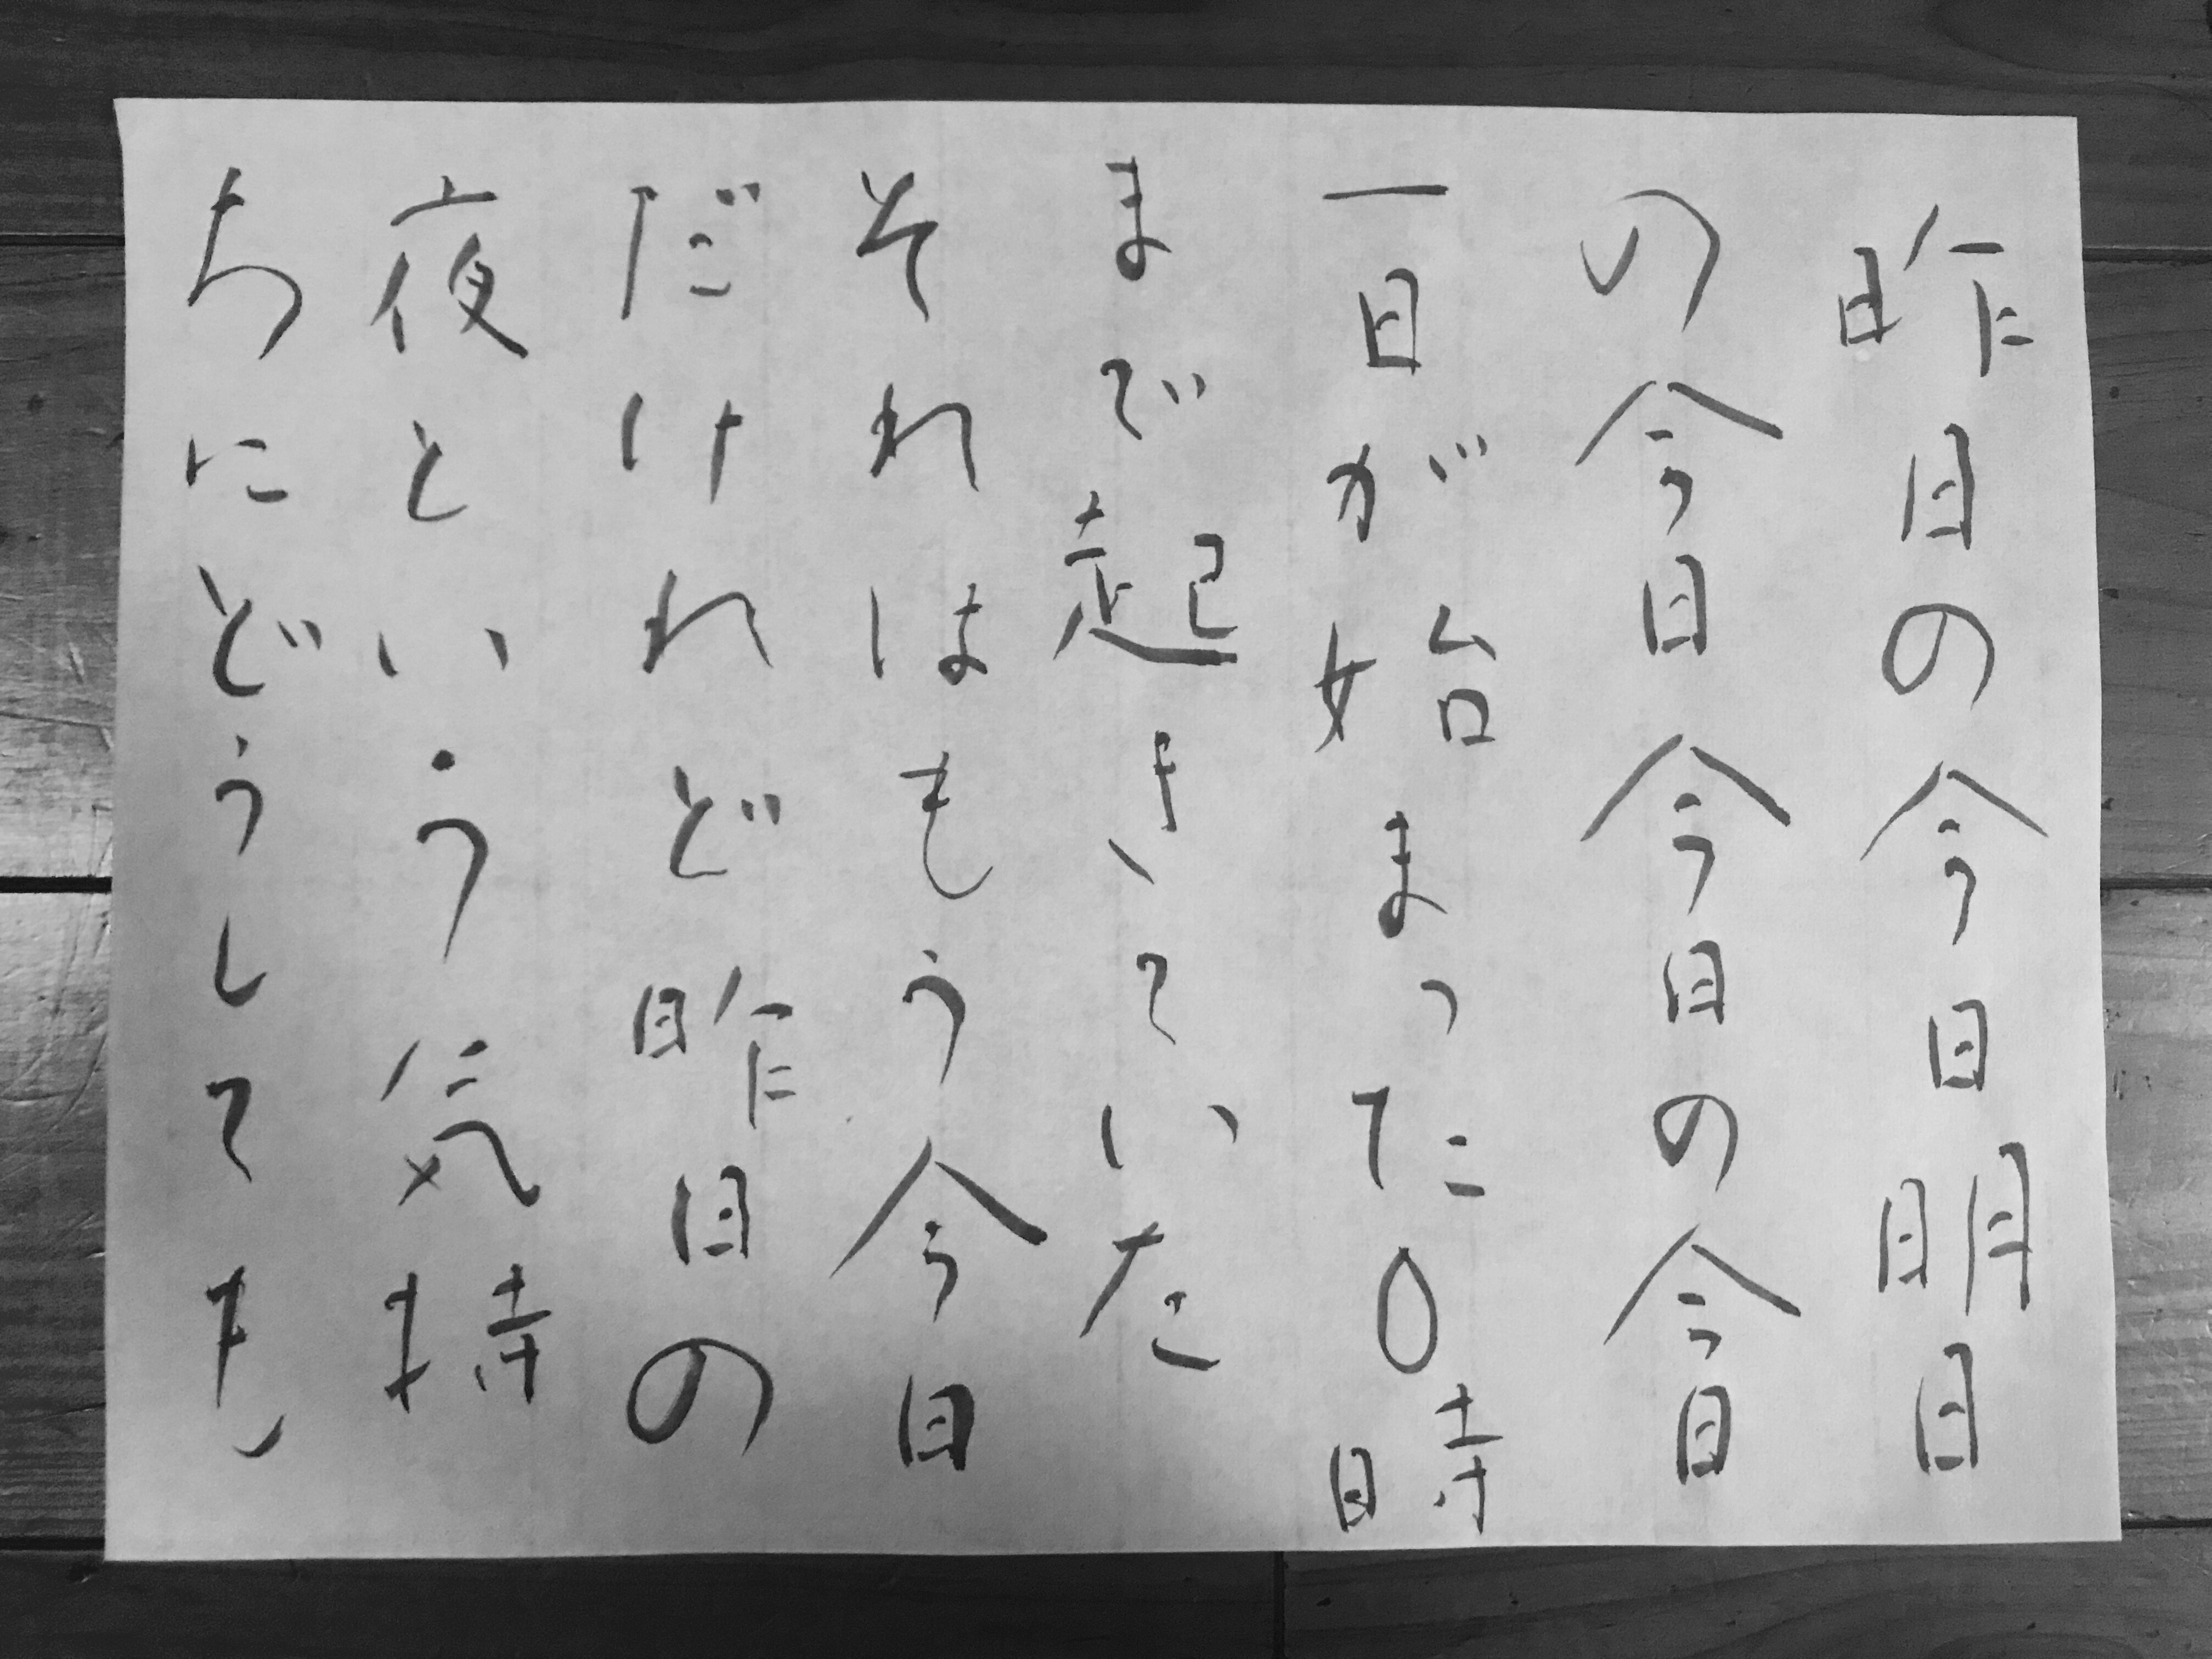 昨日の今日明日
の今日今日の今日
一日が始まった0時
まで起きていた
それはもう今日
だけれど昨日の
夜という気持
ちにどうしても